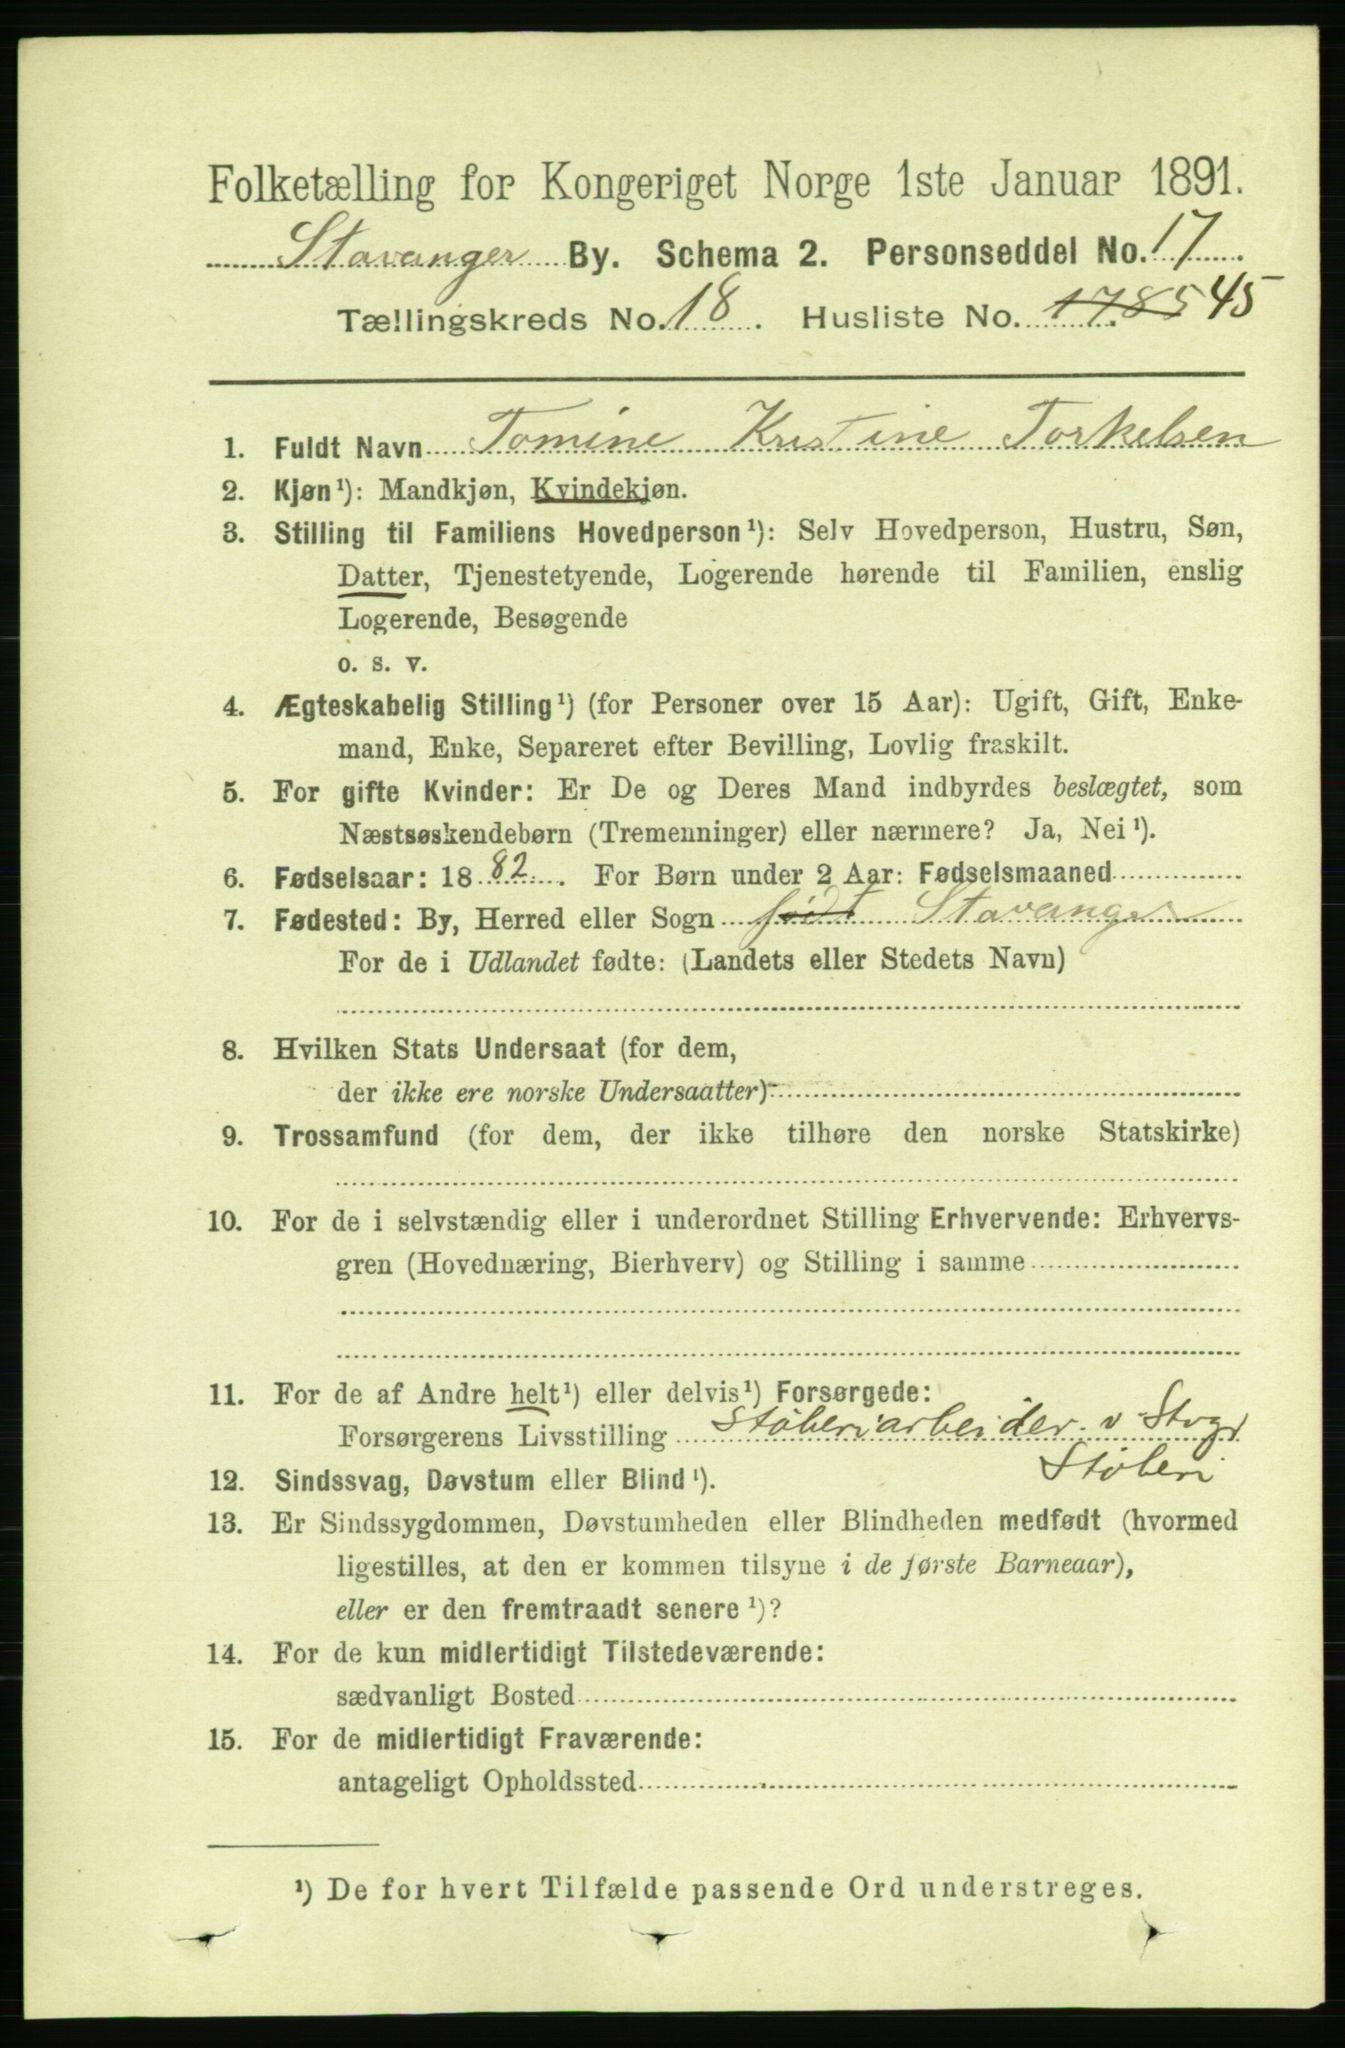 Folketælling for Kongeriget Norge 1ste Januar 1891.
Stavanger By. Schema 2. Personseddel No. 17.
Tællingskreds No. 18. Husliste No. 1785 45
1. Fuldt Navn Tomine Kristine Torkelsen
2. Kjøn¹): Mandkjøn, Kvindekjøn.
3. Stilling til Familiens Hovedperson¹): Selv Hovedperson, Hustru, Søn,
Datter, Tjenestetyende, Logerende hørende til Familien, enslig
Logerende, Besøgende
o. s. v.
4. Ægteskabelig Stilling¹) (for Personer over 15 Aar): Ugift, Gift, Enke-
mand, Enke, Separeret efter Bevilling, Lovlig fraskilt.
5. For gifte Kvinder: Er De og Deres Mand indbyrdes beslægtet, som
Næstsøskendebørn (Tremenninger) eller nærmere? Ja, Nei¹).
6. Fødselsaar: 1882. For Børn under 2 Aar: Fødselsmaaned
7. Fødested: By, Herred eller Sogn født Stavanger
For de i Udlandet fødte: (Landets eller Stedets Navn)
8. Hvilken Stats Undersaat (for dem,
der ikke ere norske Undersaatter)
9. Trossamfund (for dem, der ikke tilhøre den norske Statskirke)
10. For de i selvstændig eller i underordnet Stilling Erhvervende: Erhvervs-
gren (Hovednæring, Bierhverv) og Stilling i samme
11. For de af Andre helt¹) eller delvis¹) Forsørgede:
Forsørgerens Livsstilling Støberiarbeider v Stvgr
Støberi
12. Sindssvag, Døvstum eller Blind¹).
13. Er Sindssygdommen, Døvstumheden eller Blindheden medfødt (hvormed
ligestilles, at den er kommen tilsyne i de første Barneaar),
eller er den fremtraadt senere¹)?
14. For de kun midlertidigt Tilstedeværende:
sædvanligt Bosted
15. For de midlertidigt Fraværende:
antageligt Opholdssted
¹) De for hvert Tilfælde passende Ord understreges.